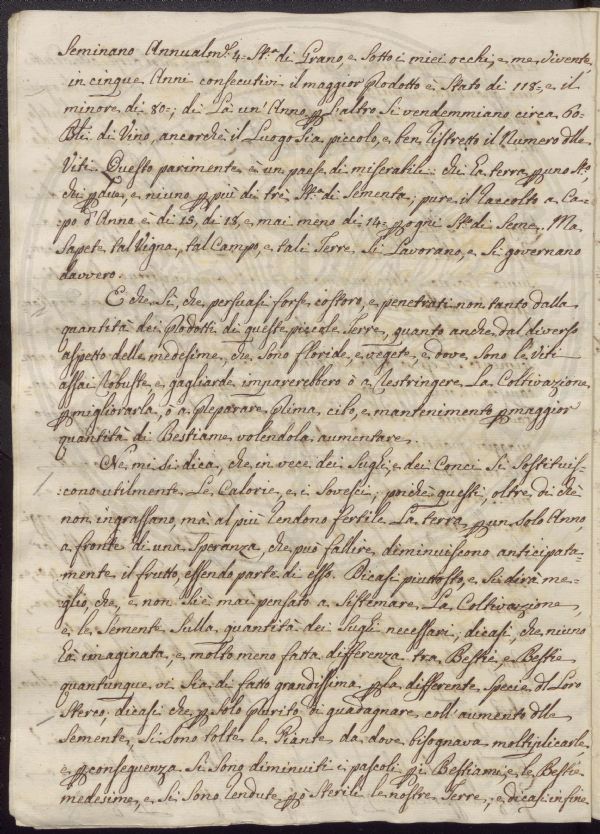 Seminano Annualm.te 4. St.a di Grano, e sotto i miei occhi, e me vivente
in cinque Anni consecutivi il maggior Prodotto è stato di 118=, e il
minore di 80=; di Là un'Anno p l'altro si vendemmiano circa 60=
Bli di Vino, ancorchè il Luogo sia piccolo, e ben ristretto il Numero dlle
Viti. Questo parimente è un paese di miserabili: chi hà terra p uno St.o
chi p due, e niuno p più di trè St.a di Sementa; pure il raccolto a Ca=
=po d'Anno è di 15, di 18, e mai meno di 14= p ogni St.o di Seme. Ma
Sapete tal Vigna, tal Campo, e tali Terre si Lavorano, e si governano
davvero.
E che sì, che persuasi forse costoro, e penetrati non tanto dalla
quantità dei Prodotti di queste piccole Terre, quanto anche dal diverso
aspetto delle medesime, che sono floride, e vegete, e dove sono le Viti
assai robuste, e gagliarde imparerebbero ò a restringere La Coltivazione
p migliorarla, ò a Preparare Prima cibo, e mantenimento p maggior
quantità di Bestiame volendola aumentare.
Ne mi si dica, che in vece dei Sughi, e dei Conci si sostituis=
=cono utilmente Le Calorie, e i Sovesci; poichè questi, oltre di chè
non ingrassano, mà al più rendono fertile La terra p un solo Anno,
a fronte di una Speranza, che può fallire diminuiscono anticipata=
mente il frutto, essendo parte di esso. Dicasi piuttosto, e si dirà me=
glio, che, e non si è mai pensato a sistemare La Coltivazione,
e le Semente sulla quantità dei Sughi necessari; dicasi, che niuno
hà imaginata, e molto meno fatta differenza tra Bestie, e Bestie
quantunque vi sia di fatto grandissima p la differente specie dl Loro
Stereo, dicasi che p solo prurito di guadagnare coll'aumento dlle
Semente, si sono tolte le Piante da dove bisognava moltiplicarle
e p conseguenza si sono diminuiti i pascoli p i Bestiami, e le Bestie
medesime, e si sono rendute p.o sterili le nostre Terre; e dicasi in fine